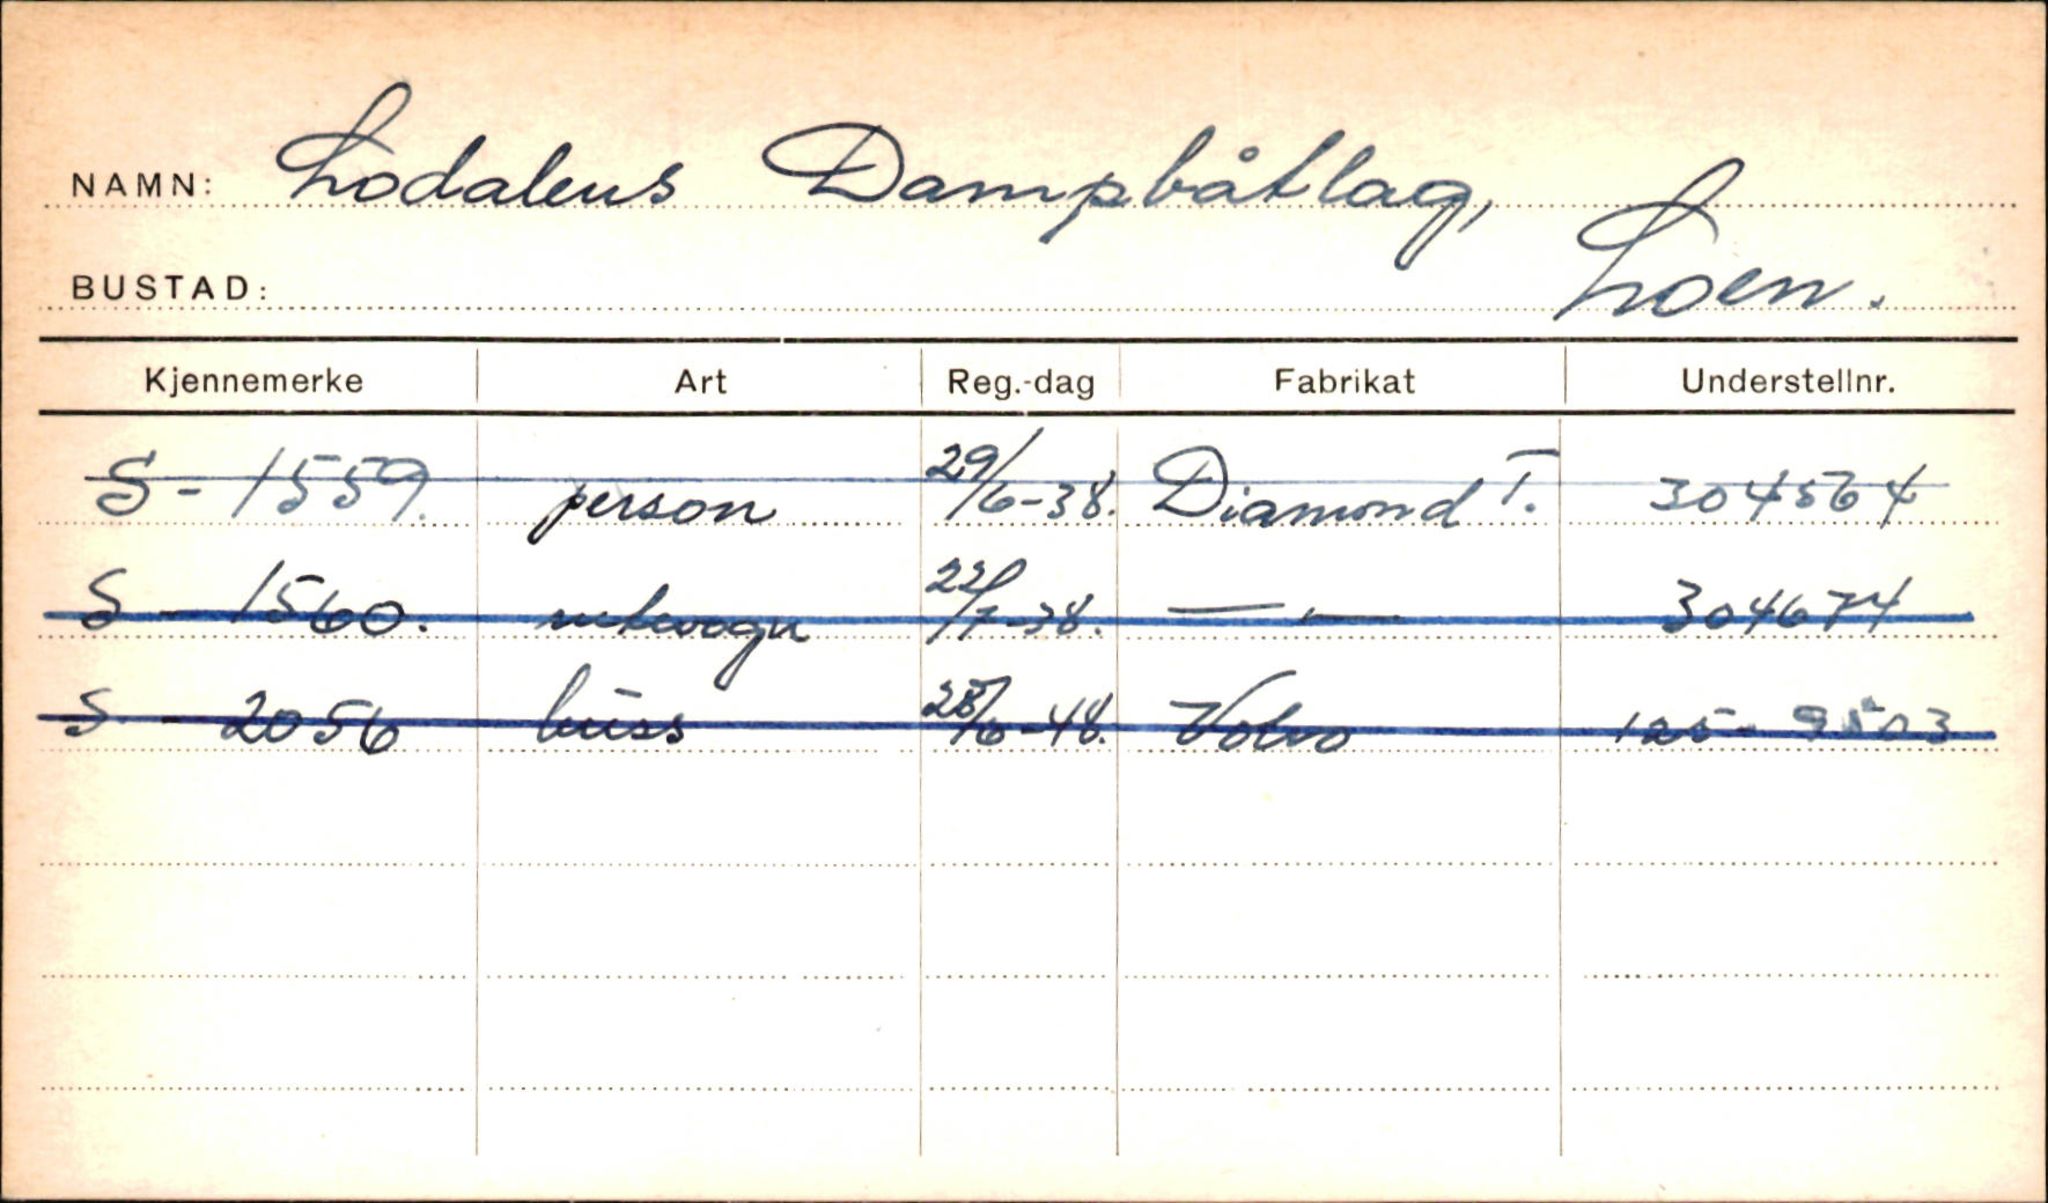 NAMN: Lodalens Dampbåtlag,
BUSTAD: Loen.
Kjennemerke Art Reg.-dag Fabrikat Understellnr.
S - 1559. person 29/6-38. Diamond T. 304564
S - 1560. rutevogn 22/7-38. — — 304674
S - 2056 buss 28/6-48. Volvo 125 - 9503